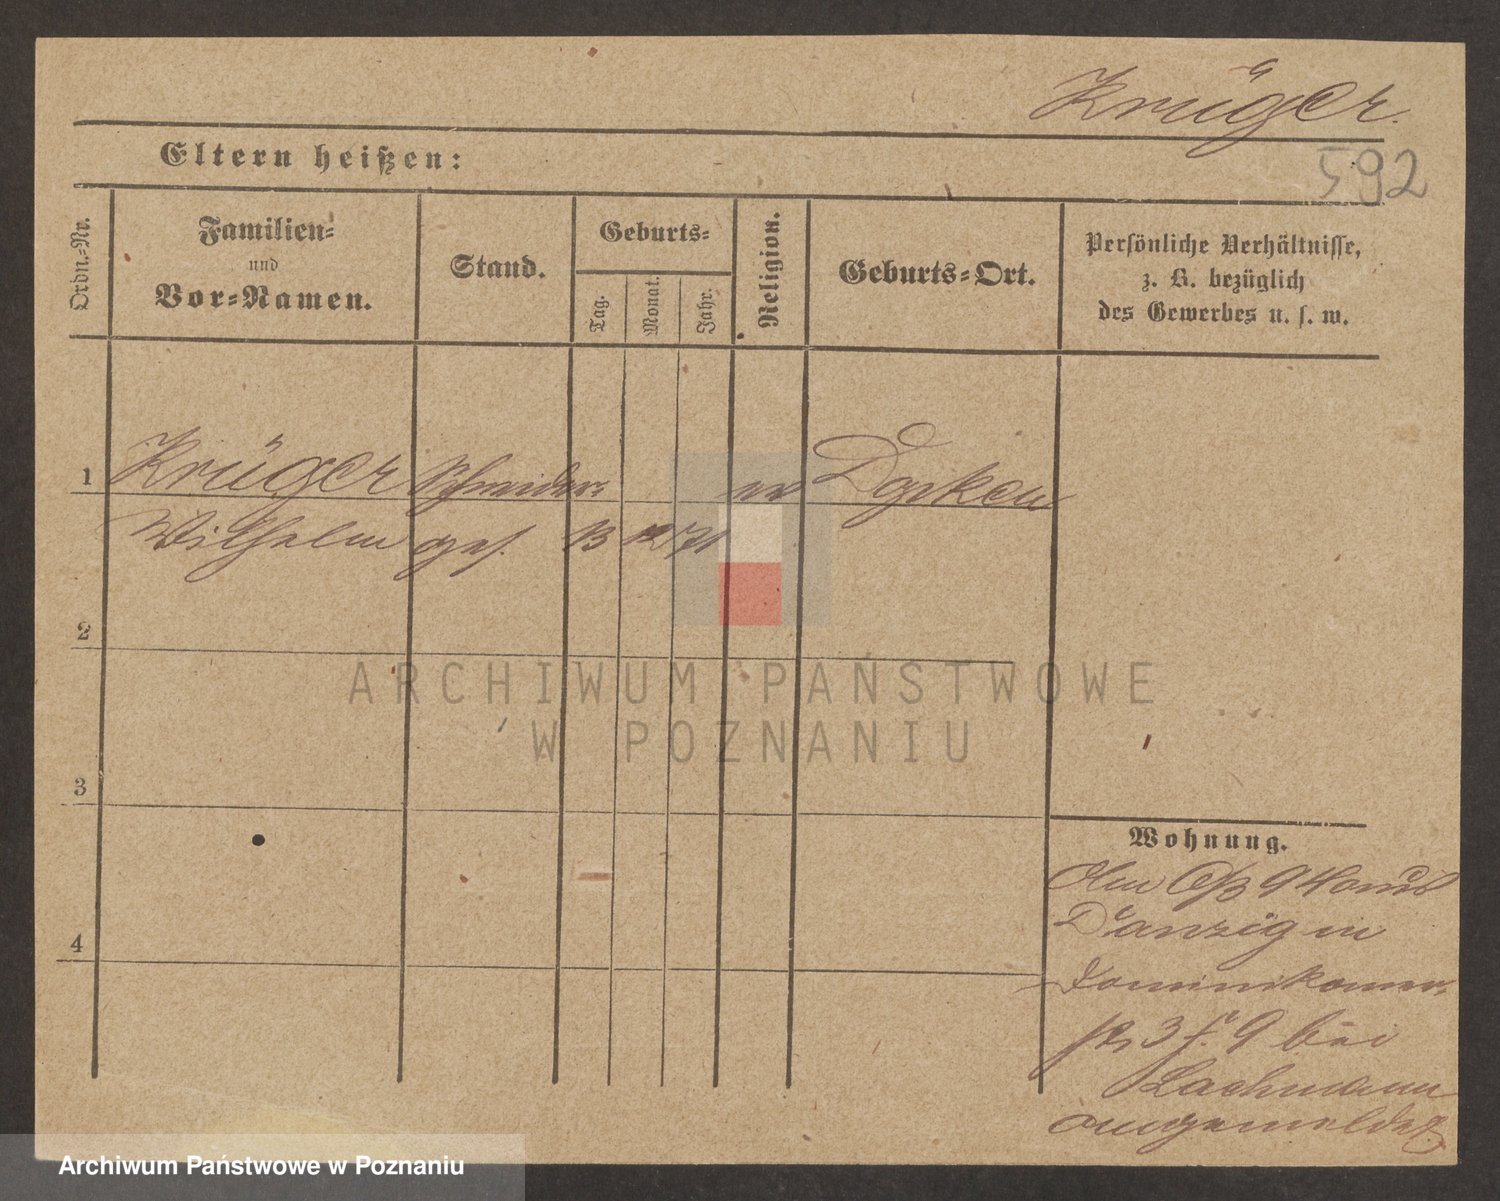 Krüger.
592
Eltern heißen:
Ordn.-Nr.
Familien-
und
Vor-Namen.
Stand.
Geburts-
Tag.
Monat.
Jahr.
Religion.
Geburts-Ort.
Persönliche Verhältnisse,
z. B. bezüglich
des Gewerbes u. s. w.
1
Krüger Schneider- ev
Wilhelm ges. 13 12 71
2
3
4
Wohnung.
Danzig in
Dominikaner-
3 f. 9 bei
Lachmann
angemeldet
ARCHIWUM PAŃSTWOWE
W POZNANIU
Archiwum Państwowe w Poznaniu